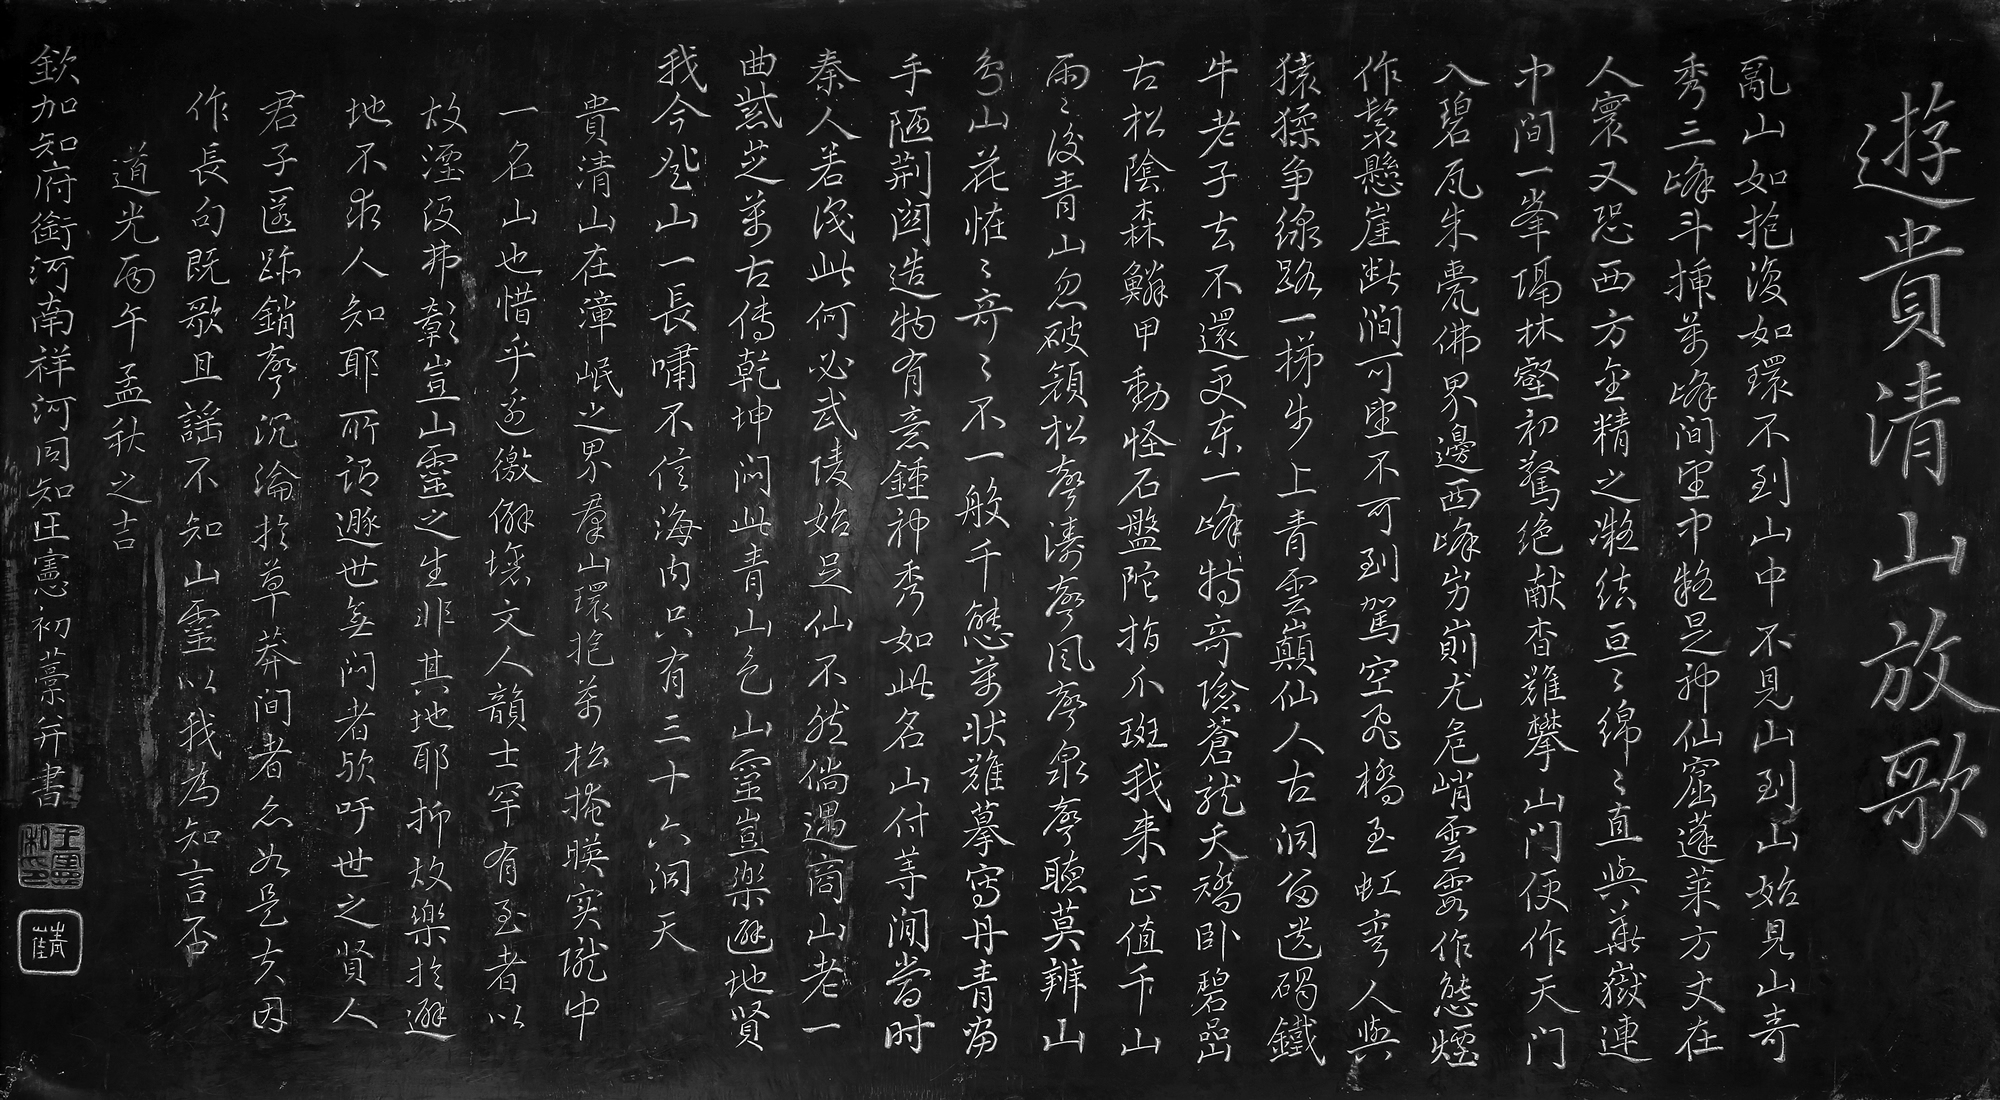 遊貴清山放歌
亂山如抱復如環不到山中不見山到山始見山奇
秀三峰斗插萬峰間望中疑是神仙窟蓬萊方丈在
人寰又恐西方金精之凝結亘〻綿〻直與華嶽連
中間一峯隔林壑初驚絕巘杳難攀山門便作天門
入碧瓦朱甍佛界邊西峰岁崱尤危峭雲霞作態煙
作鬟懸崖断澗可望不可到駕空飛橋玉虹彎人與
猿猱争線路一梯步上青雲巔仙人古洞留遺碣鐵
牛老子去不還更东一峰特奇險蒼龍夭矯卧碧巒
古松陰森鱗甲動怪石盤陀指爪斑我来正值千山
雨〻後青山忽破顏松聲濤聲風聲泉聲聽莫辨山
鸟山花怪〻奇〻不一般千態萬狀難摹寫丹青留
手陋荆関造物有意鍾神秀如此名山付等閒當时
秦人若識此何必武陵始足仙不然倘遇商山老一
曲紫芝萬古傳乾坤闷此青山色山靈豈樂避地賢
我今登山一長嘯不信海内只有三十六洞天
貴清山在漳岷之界羣山環抱萬松掩暎实隴中
一名山也惜乎遠徼僻壤文人韻士罕有至者以
故湮没弗彰豈山靈之生非其地耶抑故樂於避
地不求人知耶所谓遯世無闷者欤吁世之賢人
君子匿跡銷聲沉淪於草莽間者忽如是夫因
作長句既歌且謡不知山靈以我為知言否
道光丙午孟秋之吉
欽加知府銜河南祥河同知王憲初藁并書